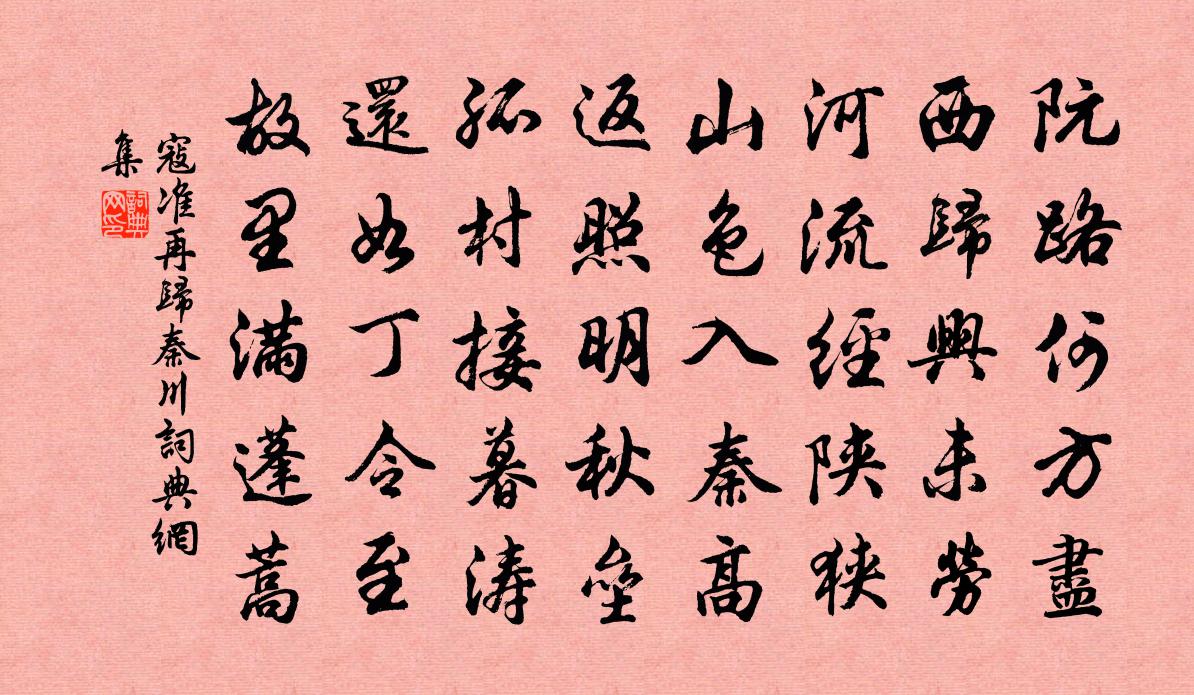 阮路何方盡
西歸興未勞
河流經陝狹
山色入秦高
返照明秋壘
孤村接暮濤
還如丁令至
故里滿蓬蒿
寇准再歸秦川詞典網
集
詞典
网印